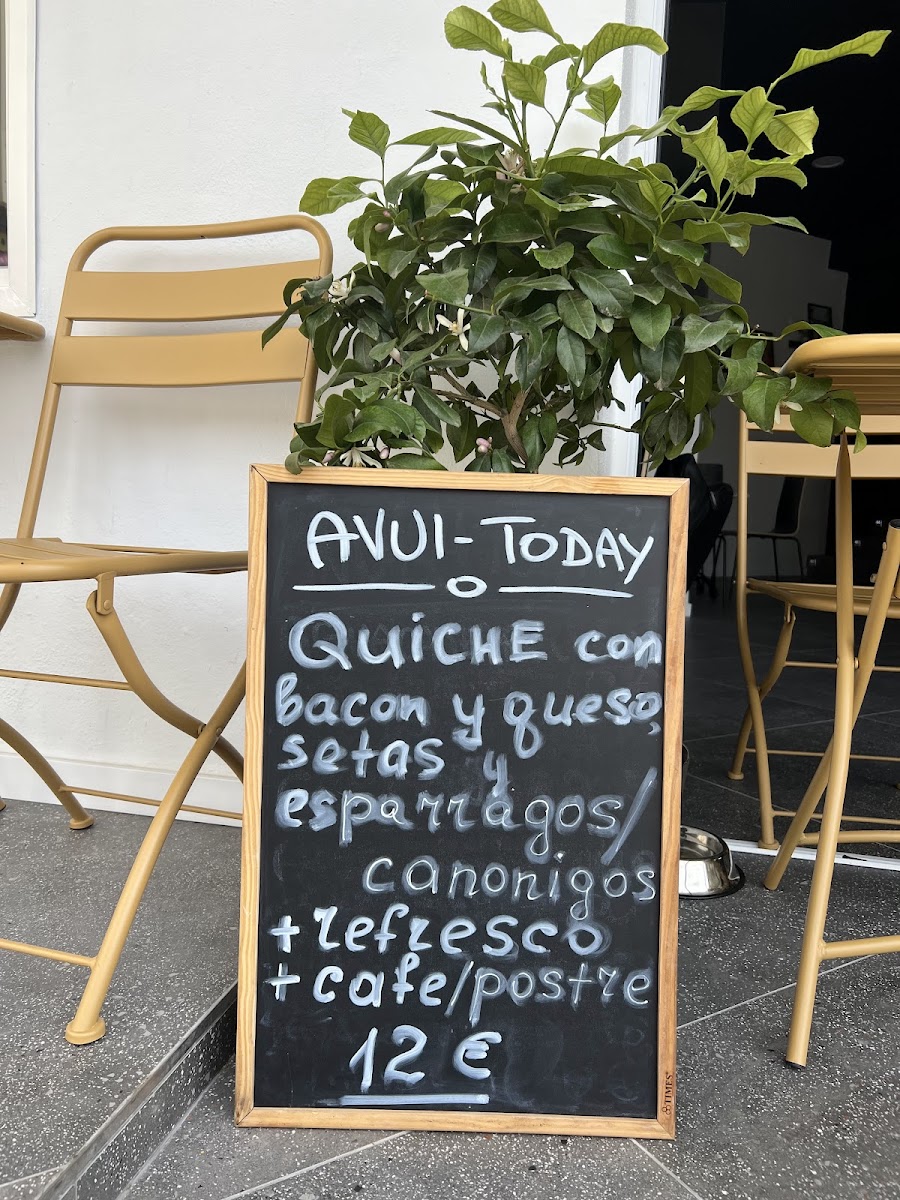 AVUI - TODAY
QUiCHE con
bacon y queso,
setas y
esparragos/
canonigos
+ refresco
+ cafe/postre
12 €
TIMES